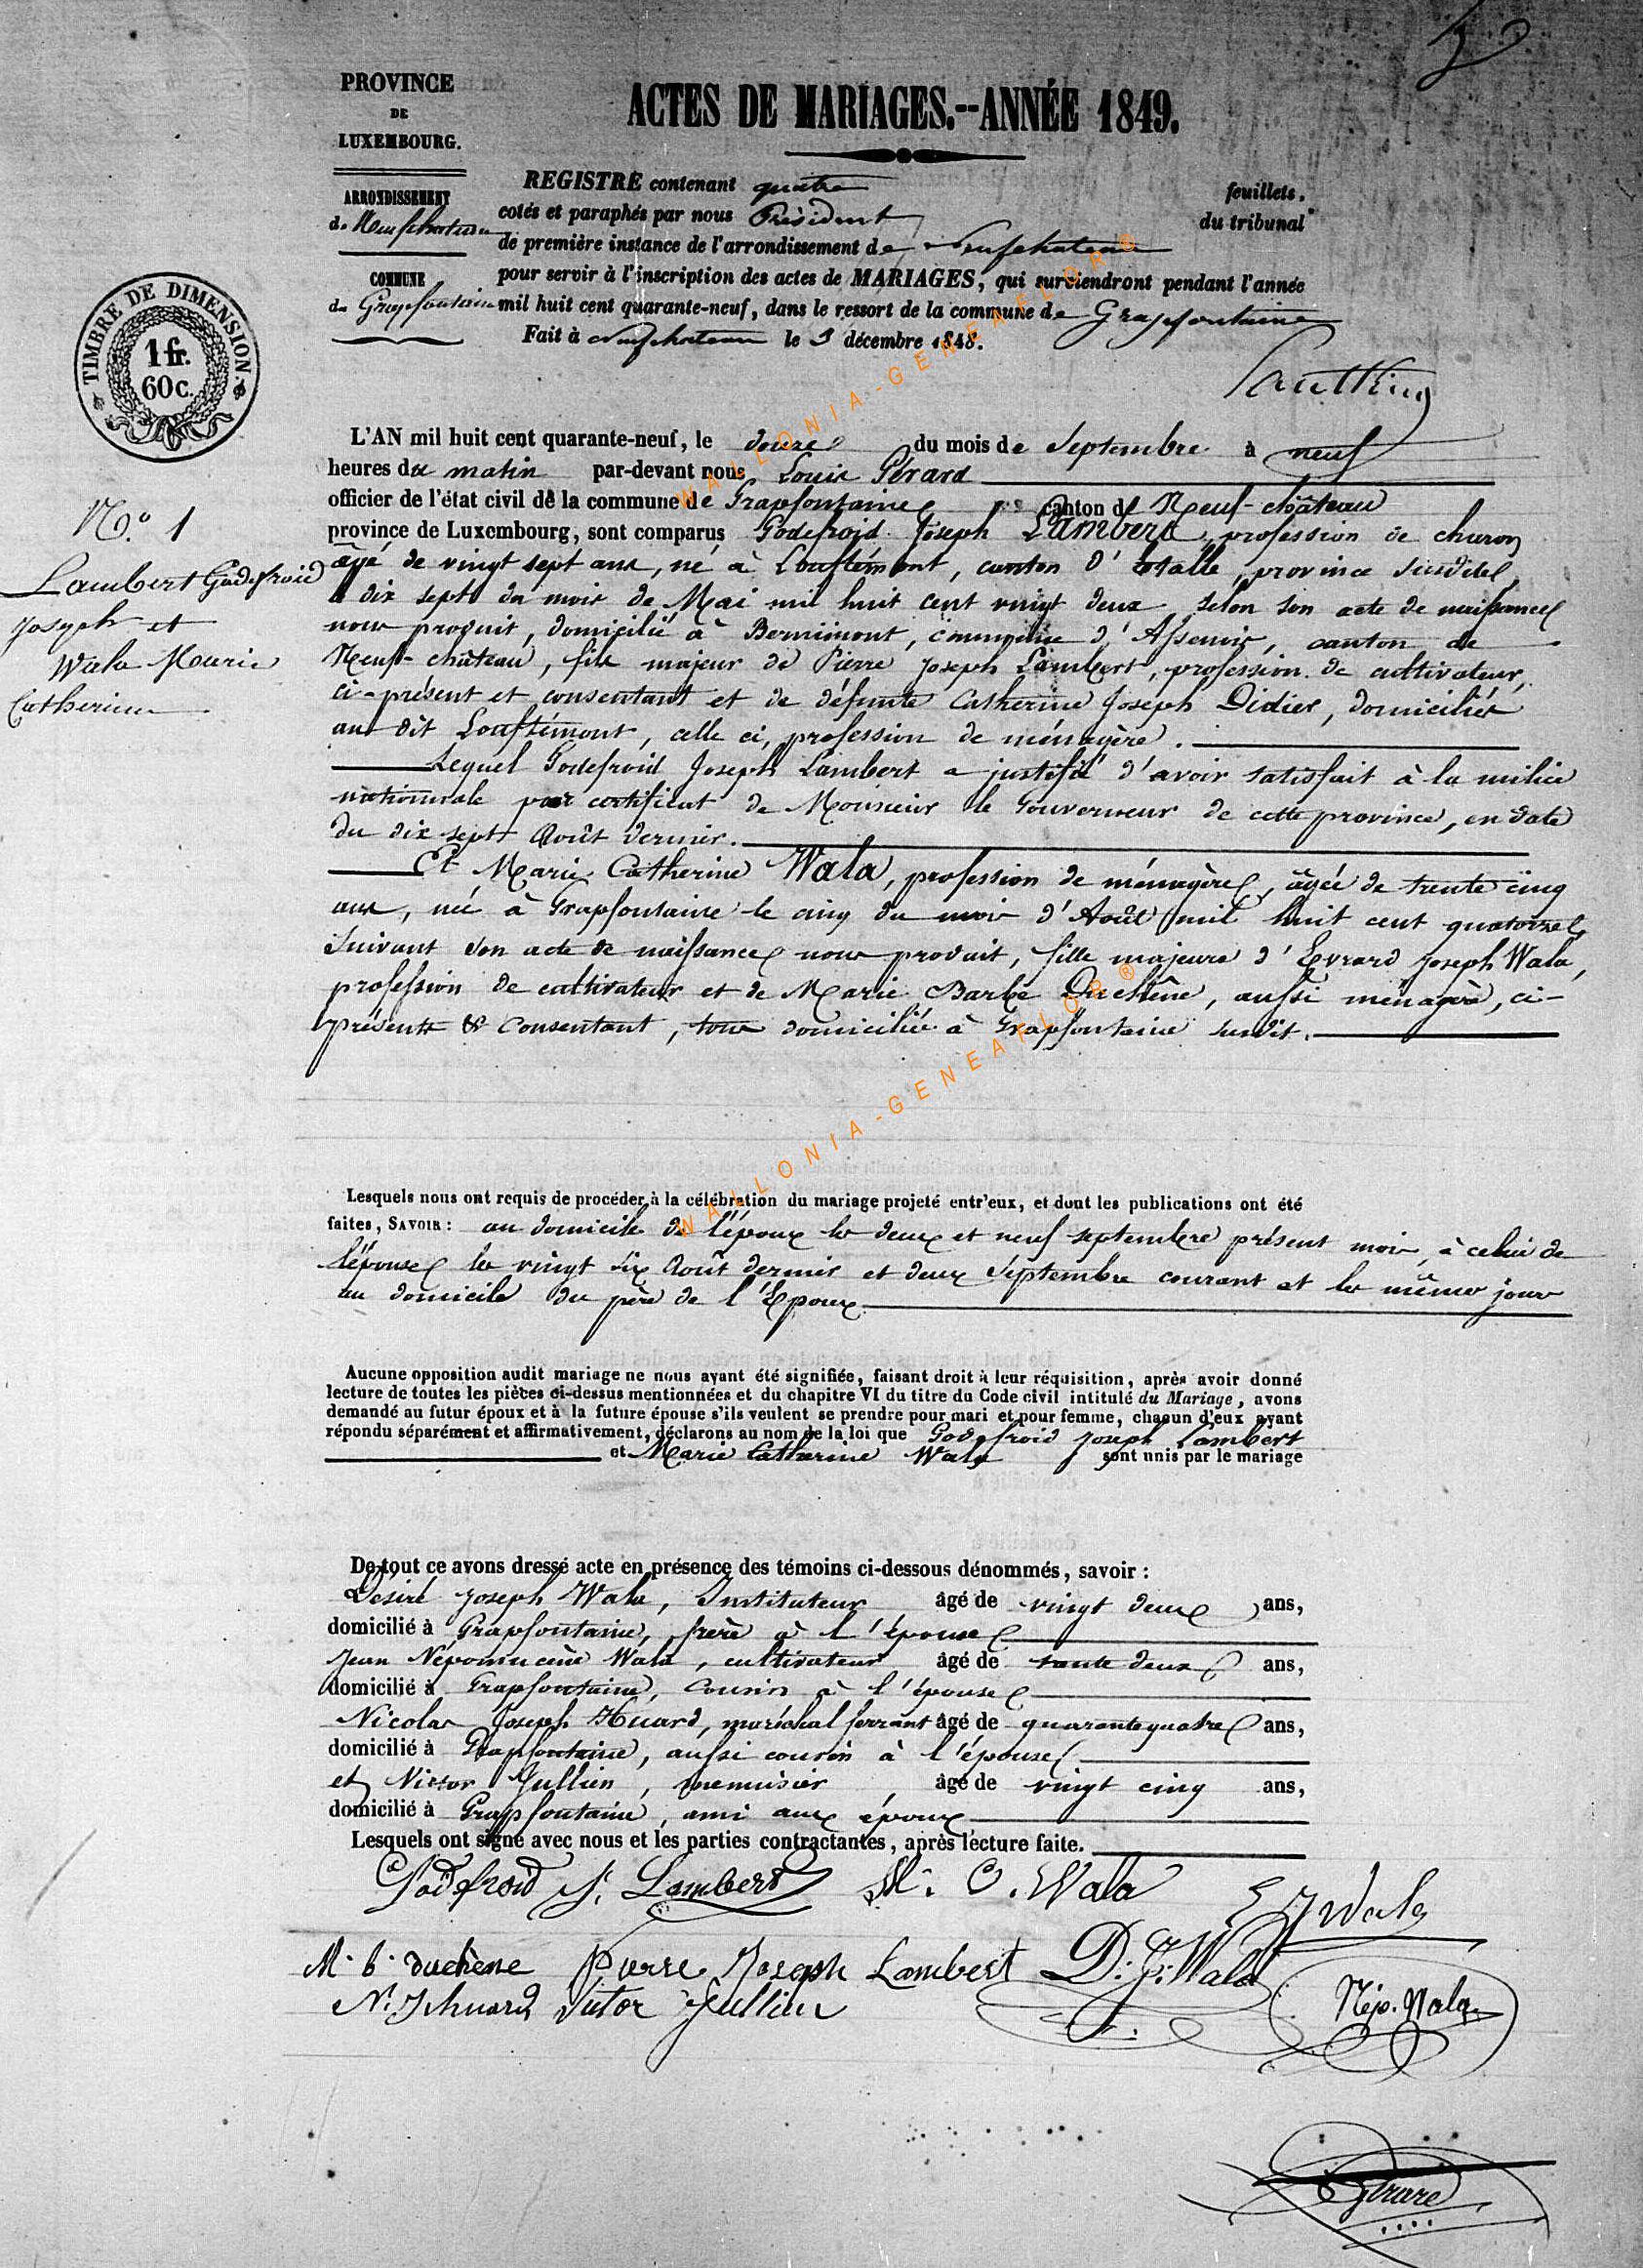 PROVINCE
DE
LUXEMBOURG.
ARRONDISSEMENT
de Neufchateau
COMMUNE
de Grapfontaine
TIMBRE DE DIMENSION
1 fr.
60 c.
ACTES DE MARIAGES.--ANNÉE 1849.
REGISTRE contenant quatre feuillets.
cotés et paraphés par nous Président du tribunal
de première instance de l'arrondissement de Neufchateau
pour servir à l'inscription des actes de MARIAGES, qui surviendront pendant l'année
mil huit cent quarante-neuf, dans le ressort de la commune de Grapfontaine
Fait à Neufchateau le 3 décembre 1848.
N.º 1
Lambert Godefroid
Joseph et
Wala Marie
Catherine
L'AN mil huit cent quarante-neuf, le douze du mois de Septembre à neuf
heures du matin par-devant nous Louis Gérard
officier de l'état civil de la commune de Grapfontaine canton de Neuf-château
province de Luxembourg, sont comparus Godefroid Joseph Lambert, profession de charon
âgé de vingt sept ans, né à Louftémont, canton d'Etalle, province susdite,
le dix sept du mois de Mai mil huit cent vingt deux, selon son acte de naissance
nous produit, domicilié à Bernimont, commune d'Assenois, canton de
Neuf-château, fils majeur de Pierre Joseph Lambert, profession de cultivateur,
ci-présent et consentant et de défunte Catherine Joseph Didier, domiciliés
au dit Louftémont, celle ci, profession de ménagère.
Lequel Godefroid Joseph Lambert a justifié d'avoir satisfait à la milice
nationale par certificat de Monsieur le Gouverneur de cette province, en date
du dix sept Août dernier.
Et Marie Catherine Wala, profession de ménagère, âgée de trente cinq
ans, née à Grapfontaine le cinq du mois d'Août mil huit cent quatorze
suivant son acte de naissance nous produit, fille majeure d'Evrard Joseph Wala,
profession de cultivateur et de Marie Barbe Duchêne, aussi ménagère, ci-
présents & consentant, tous domiciliés à Grapfontaine susdit.
Lesquels nous ont requis de procéder à la célébration du mariage projeté entr'eux, et dont les publications ont été
faites, SAVOIR : au domicile de l'époux les deux et neuf septembre présent mois, à celui de
l'épouse les vingt six Août dernier et deux Septembre courant et les mêmes jours
au domicile du père de l'Epoux.
Aucune opposition audit mariage ne nous ayant été signifiée, faisant droit à leur réquisition, après avoir donné
lecture de toutes les pièces ci-dessus mentionnées et du chapitre VI du titre du Code civil intitulé du Mariage, avons
demandé au futur époux et à la future épouse s'ils veulent se prendre pour mari et pour femme, chacun d'eux ayant
répondu séparément et affirmativement, déclarons au nom de la loi que Godefroid Joseph Lambert
et Marie Catherine Wala sont unis par le mariage
De tout ce avons dressé acte en présence des témoins ci-dessous dénommés, savoir :
Désiré Joseph Wala, Instituteur âgé de vingt deux ans,
domicilié à Grapfontaine, frère à l'épouse
Jean Népomucène Wala, cultivateur âgé de trente deux ans,
domicilié à Grapfontaine, cousin à l'épouse
Nicolas Joseph Huard, maréchal ferrant âgé de quarante quatre ans,
domicilié à Grapfontaine, aussi cousin à l'épouse
et Victor Jullien, menuisier âgé de vingt cinq ans,
domicilié à Grapfontaine, ami aux époux
Lesquels ont signé avec nous et les parties contractantes, après lecture faite.
Godefroid J. Lambert M. C. Wala E J Wala
M. b. duchêne Pierre Joseph Lambert D. J. Wala
N. J huard Victor Jullien Nép. Wala
Gérard
WALLONIA-GENEAFLOR®
WALLONIA-GENEAFLOR®